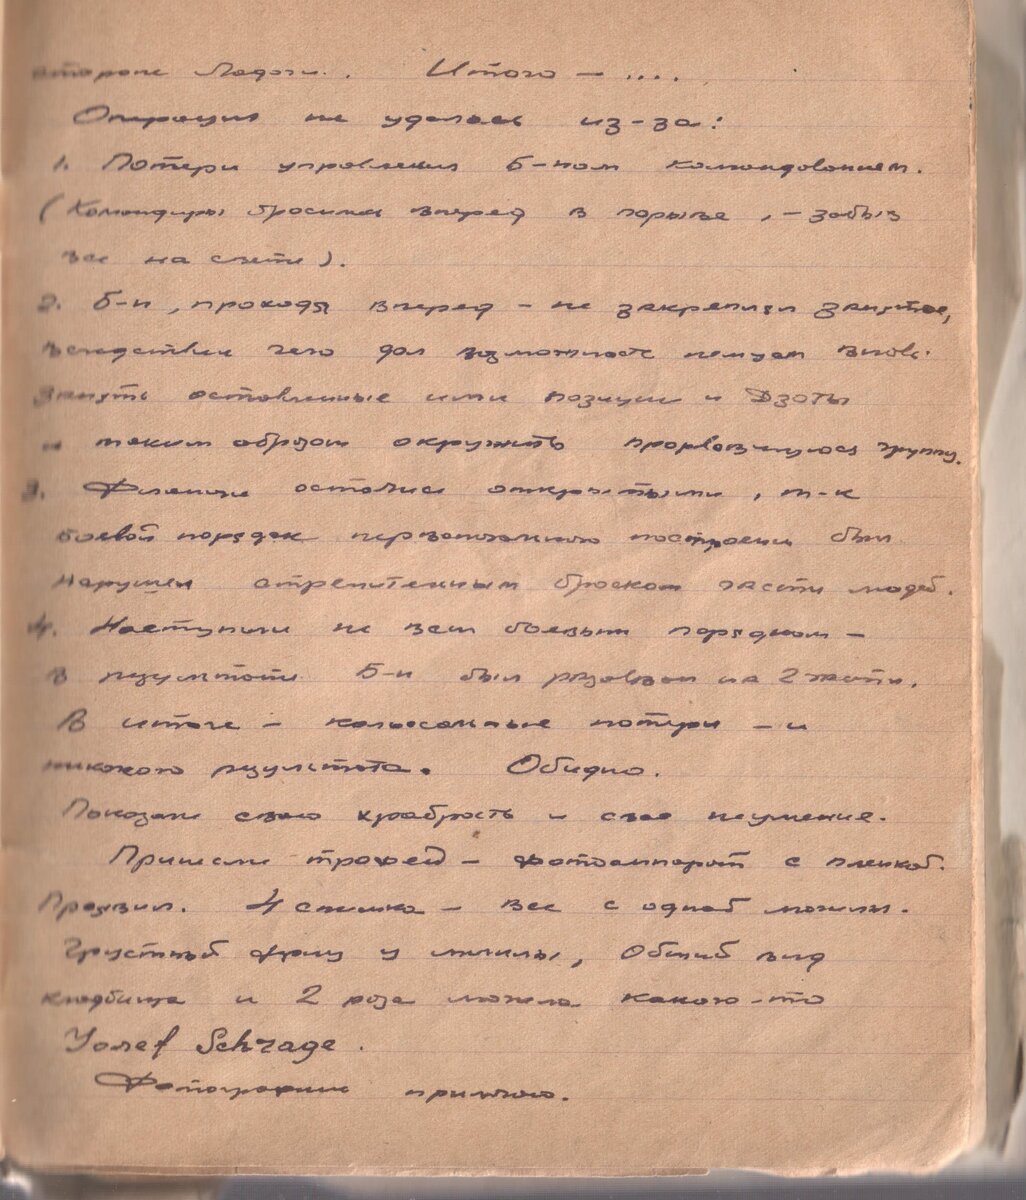 стороне Ладоги.. Итого — ....
Операция не удалась из-за:
1. Потери управления б-ном командованием.
(Командиры бросились вперед в порыве, – забыв
все на свете).
2. б-н, проходя вперед – не закреплял занятое,
вследствии чего дал возможность немцам вновь
занять оставленные ими позиции и Дзоты
и таким образом окружить прорвавшуюся группу.
3. Фланги остались открытыми, т-к
боевой порядок первоначального построения был
нарушен стремительным броском части людей.
4. Наступили не всем боевым порядком –
в результате б-н был разорван на 2 части.
В итоге – колоссальные потери – и
никакого результата. Обидно.
Показали свою храбрость и свое неумение.
Принесли трофей – фотоаппарат с пленкой.
Проявил. 4 снимка – все с одной могилы.
Грустный фриц у могилы, Общий вид
кладбища и 2 раза могила какого-то
Yosef Schrage.
Фотографии прилагаю.